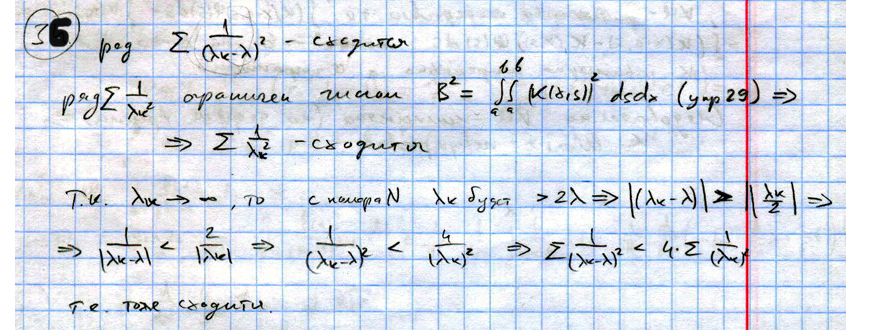 36 ряд ∑ 1/(λк-λ)² - сходится
ряд ∑ 1/λк² ограничен числом B² = ∫ₐᵇ∫ₐᵇ |K(x,s)|² dsdx (упр 29) ⇒
⇒ ∑ 1/λк² - сходится
Т.к. λк → ∞, то с номера N λк будет > 2λ ⇒ |(λк-λ)| > |λк/2| ⇒
⇒ 1/|λк-λ| < 2/|λк| ⇒ 1/(λк-λ)² < 4/(λк)² ⇒ ∑ 1/(λк-λ)² < 4·∑ 1/(λк)²
т.е. тоже сходится.